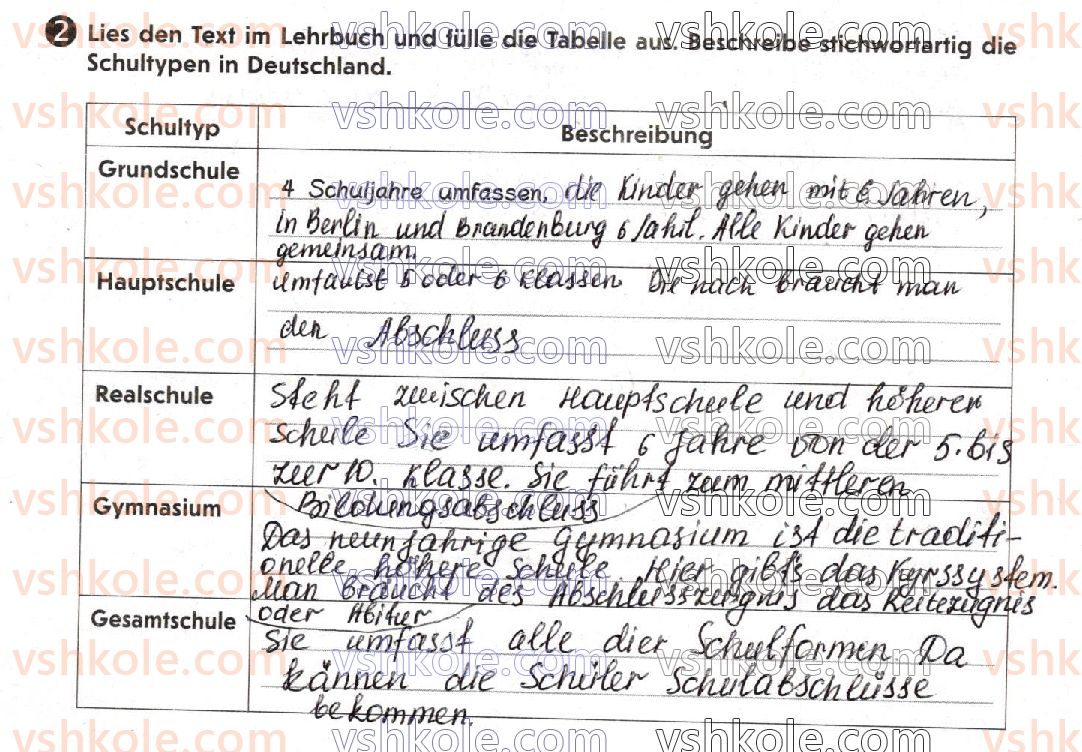 2 Lies den Text im Lehrbuch und fülle die Tabelle aus. Beschreibe stichwortartig die
Schultypen in Deutschland.
Schultyp Beschreibung
Grundschule
4 Schuljahre umfassen, die Kinder gehen mit 6 Jahren,
in Berlin und Brandenburg 6 Jahr. Alle Kinder gehen
gemeinsam.
Hauptschule
umfasst 5 oder 6 Klassen. Die nach braucht man
den Abschluss
Realschule
Steht zwischen Hauptschule und höherer
Schule Sie umfasst 6 Jahre von der 5. bis
zur 10. Klasse. Sie führt zum mittleren
Bildungsabschluss
Gymnasium
Das neunjährige Gymnasium ist die traditi-
onelle höhere Schule Hier gibts das Kyrssystem.
Man braucht des Abschlusszeugnis das Reitezugnis
oder Abitur
Gesamtschule
Sie umfasst alle dier Schulformen Da
kännen die Schüler Schulabschlüsse
bekommen.
vshkole.com